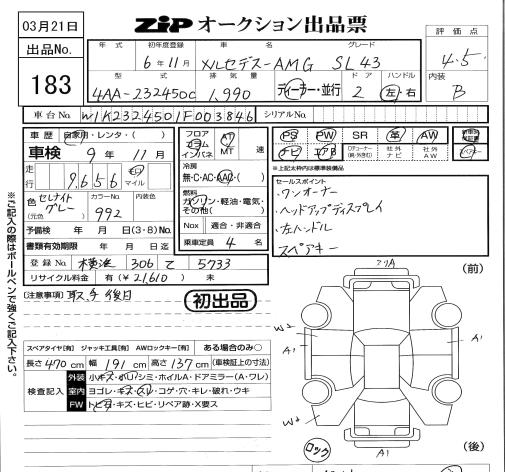 03月21日
出品No.
183
ZIP オークション出品票
評価点
4.5
内装
B
年式 初年度登録 車名 グレード
6年11月 メルセデス-AMG SL43
型式 排気量 ドア ハンドル
4AA-232450C 1,990 ディーラー・並行 2 左・右
車台No. W1K2324501F003846 シリアルNo.
車歴 自家用・レンタ・( )
車検 9年11月
走行 9656 キロ マイル
色 セレナイトグレー (元色) カラーNo. 992 内装色
予備検 年 月 日(3・8)No.
書類有効期限 年 月 日迄
登録No. 横浜 306 て 5733
リサイクル料金 有(¥21,610) 未
フロア コラム インパネ AT MT 速
冷房
無・C・AC・AAC・( )
燃料
ガソリン・軽油・電気・その他( )
Nox 適合・非適合
乗車定員 4 名
PS PW SR 革 AW
ナビ エアB 社外ナビ 社外AW
※上記太枠内は標準装備品
セールスポイント
・ワンオーナー
・ヘッドアップディスプレイ
・左ハンドル
スペアキー
[注意事項] 取、予 後日
初出品
スペアタイヤ[有] ジャッキ工具[有] AWロックキー[有] ある場合のみ○
長さ470cm 幅191cm 高さ137cm (車検証上の寸法)
検査記入
外装 小キズ・小凹・シミ・ホイルA・ドアミラー(A・ワレ)
室内 ヨゴレ・キズ・スレ・コゲ・穴・キレ・破れ・ウキ
FW トビ石・キズ・ヒビ・リペア跡・X要ス
(前)
A1
W2
A1
A1
W2
A1
ロック
(後)
※ご記入の際はボールペンで強くご記入下さい。